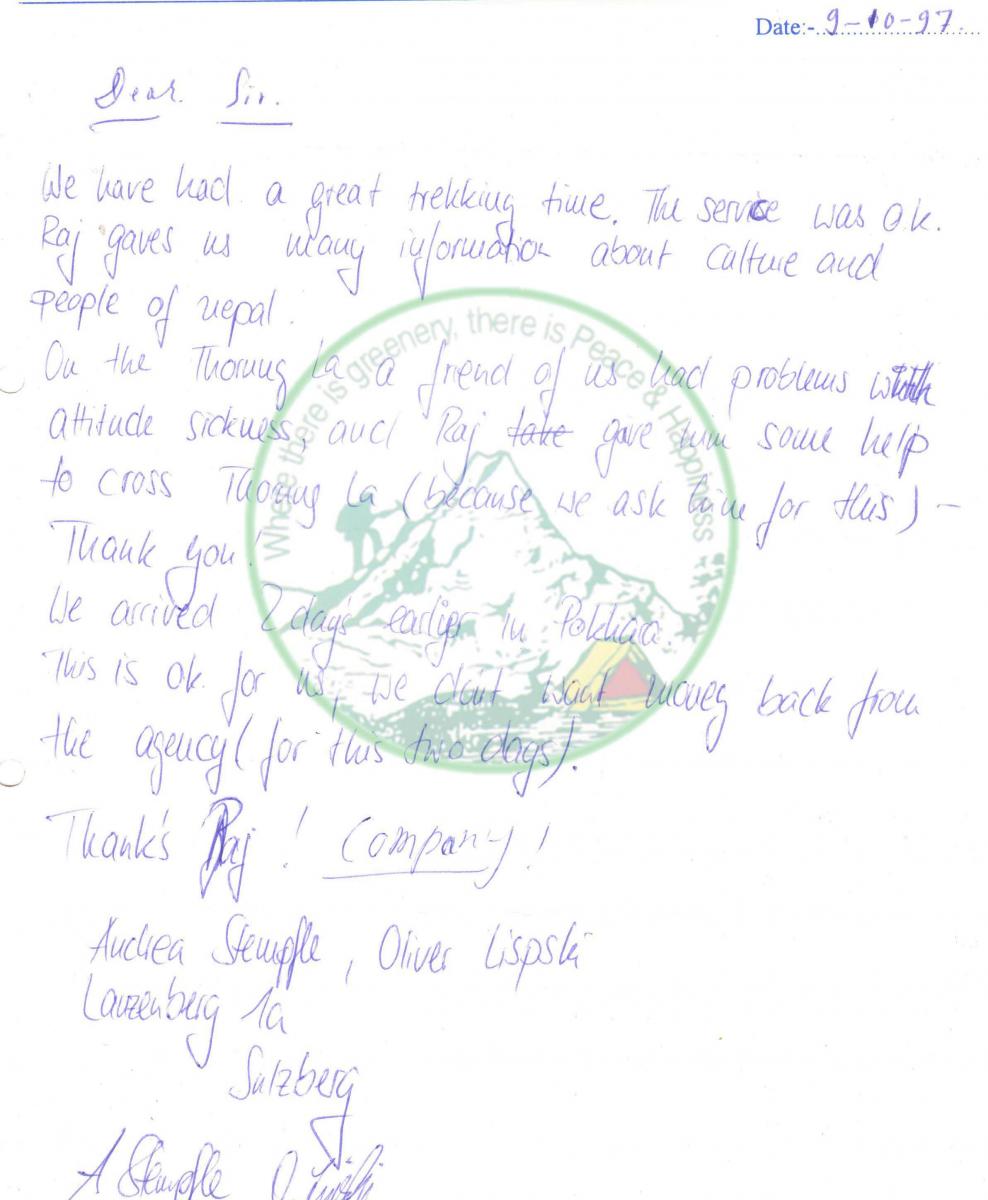 Date:- 9-10-97.
Dear. Sir.
We have had a great trekking time. The service was o.k.
Raj gaves us many information about Culture and
People of nepal.
On the Thorung La a friend of us had problems with
attitude sickness, and Raj take gave him some help
to cross Thorung La (because we ask him for this) -
Thank you!
We arrived 2 day's earlier in Pokhara.
This is ok. for us, we don't want money back from
the agency (for this two days).
Thank's Raj ! Company !
Andrea Stempfle, Oliver Lispski
1a
Sulzberg
A Stempfle
Where there is greenery, there is Peace & Happiness